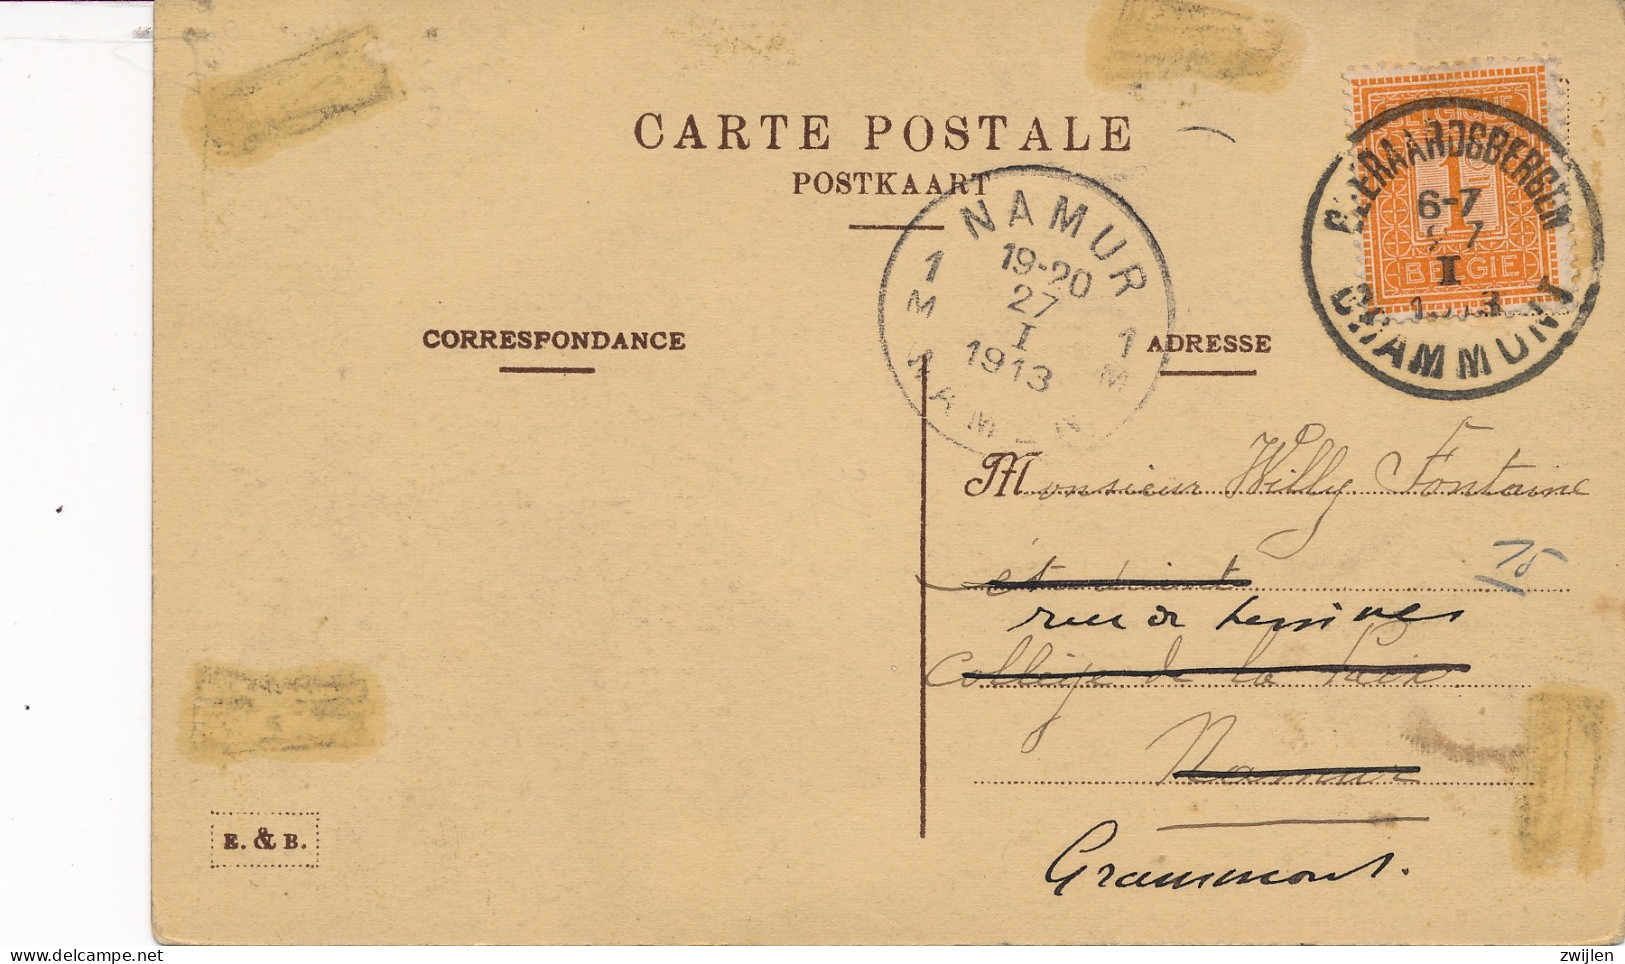 CARTE POSTALE
POSTKAART
BELGIQUE
1c
BELGIE
GEERAARDSBERGEN
6-7
I
GRAMMONT
NAMUR
19-20
27
I
1913
1 M
1 M
NAMUR
CORRESPONDANCE
ADRESSE
Monsieur Willy Fontaine
étudiant
15
rue de Lessines
Collège de la Paix
Namur
Grammont.
E. & B.
zwijlen